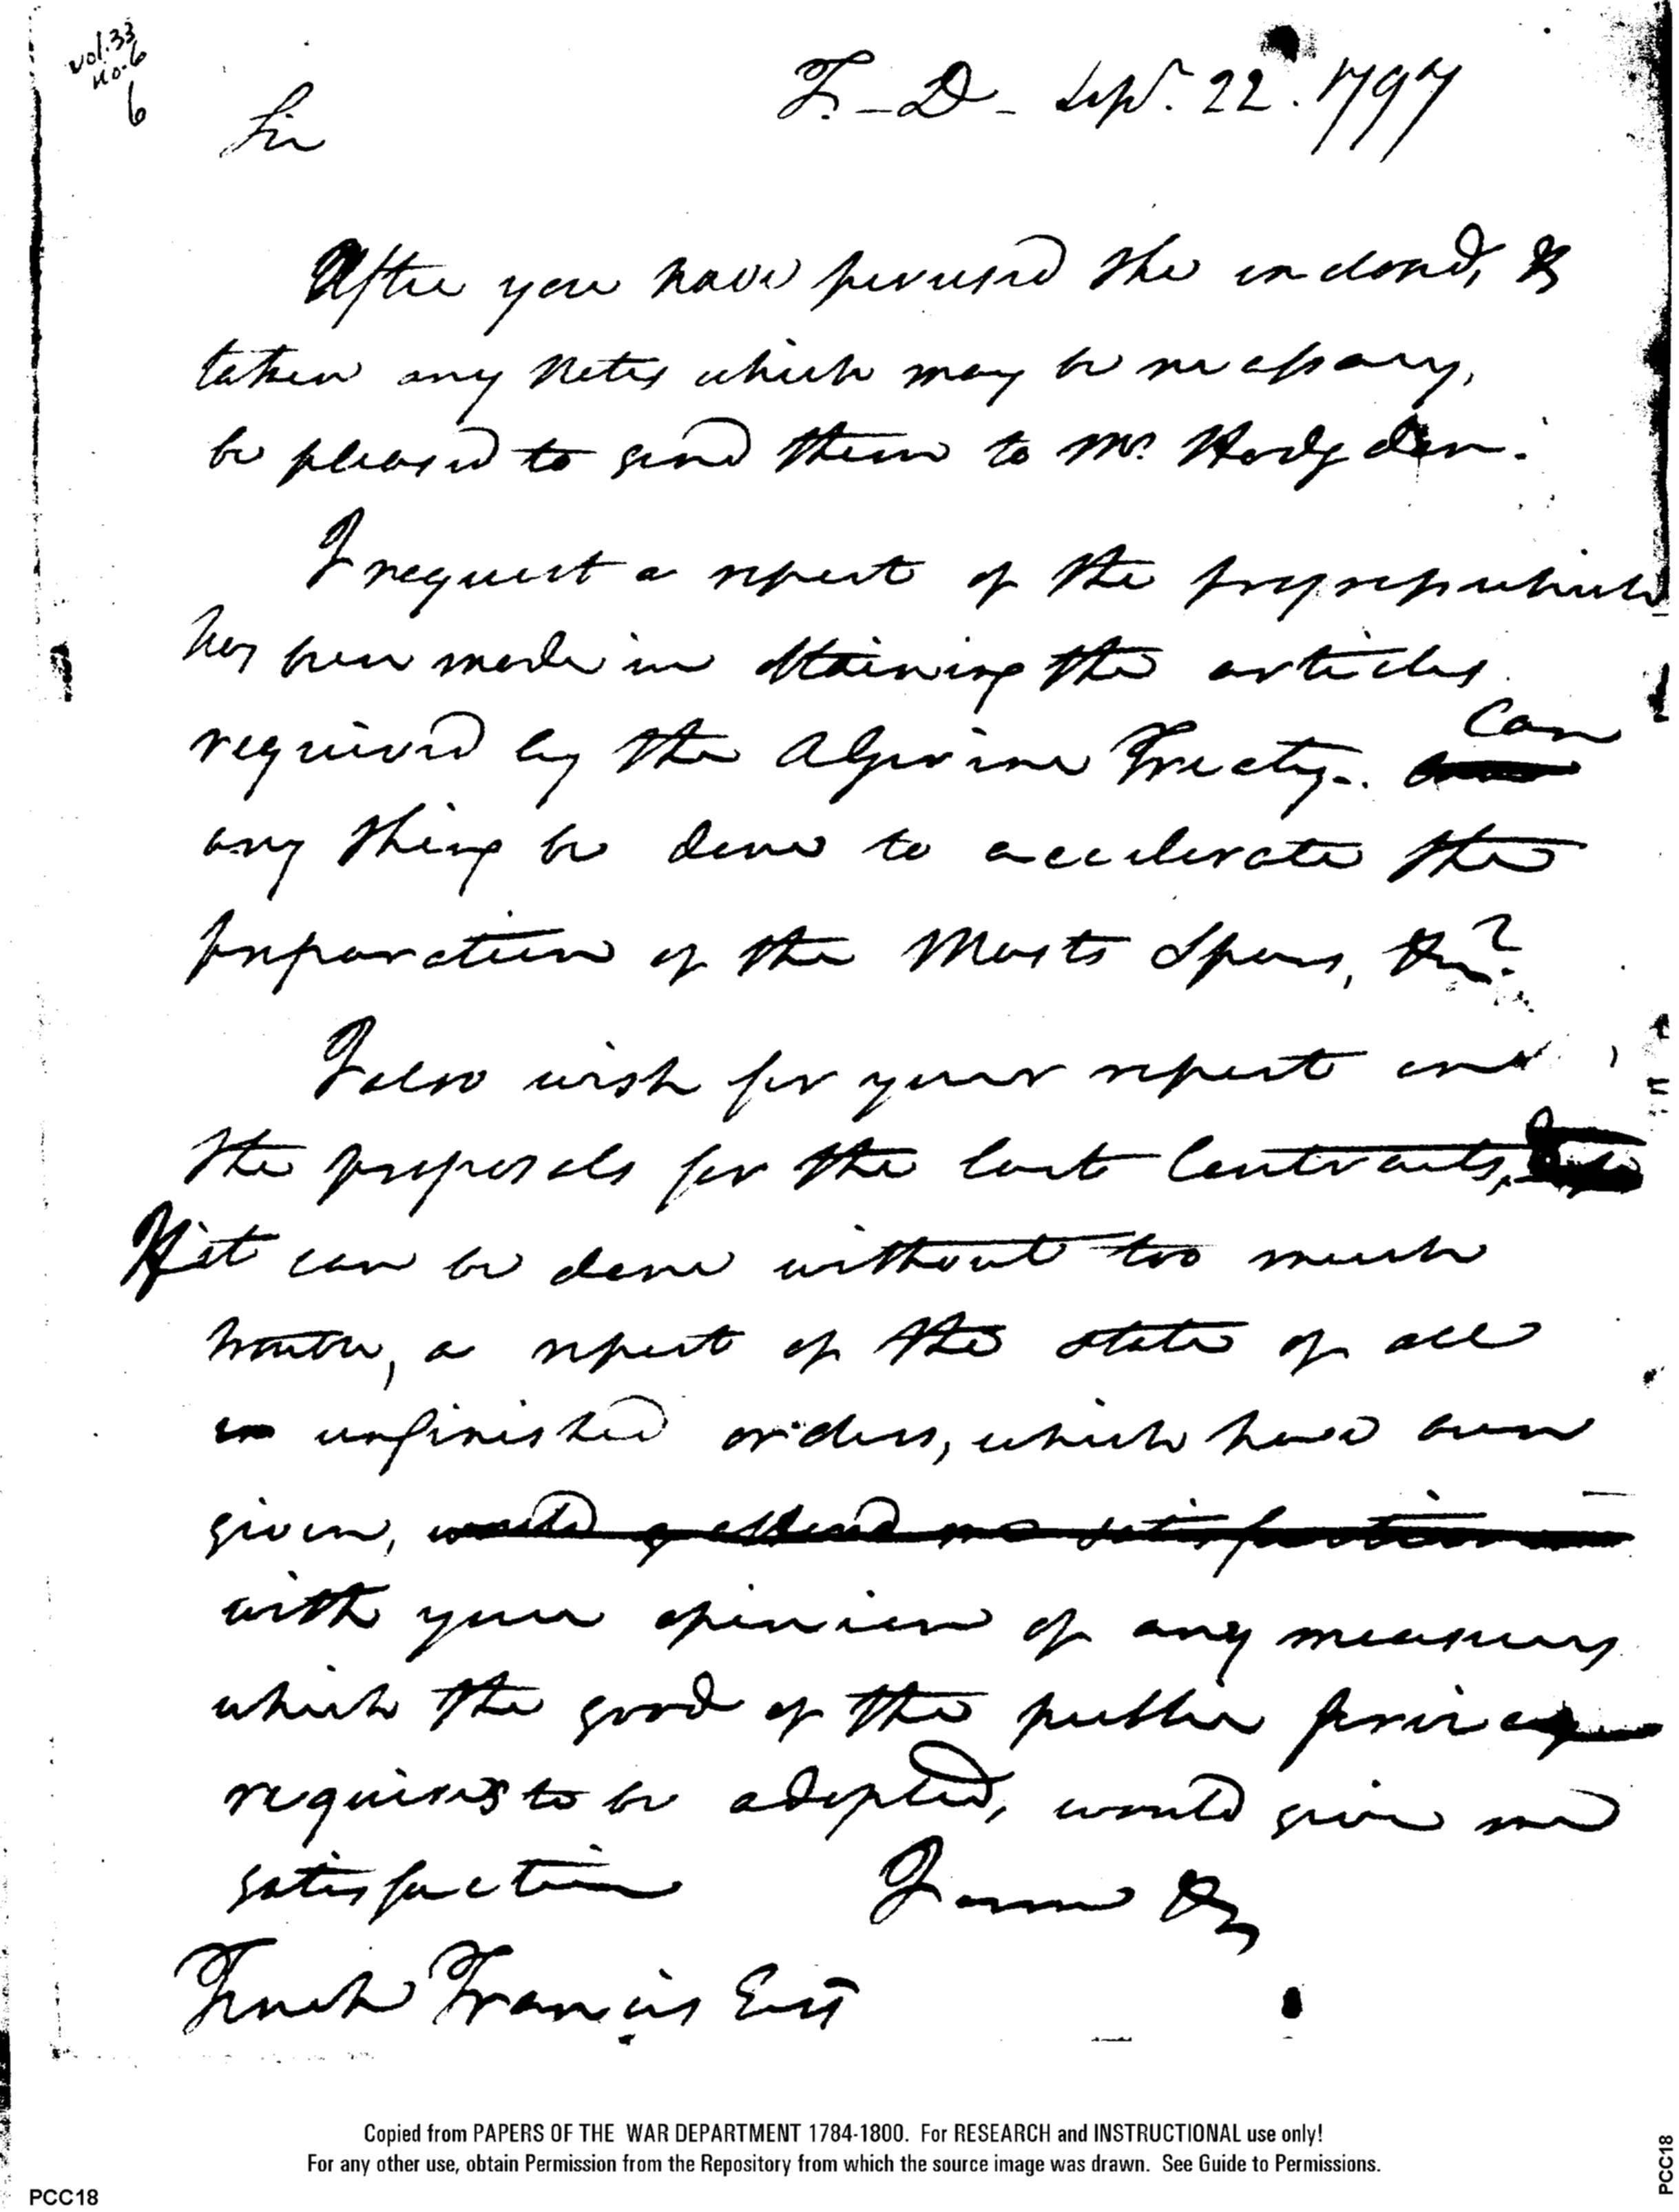 vol. 33
no. 6
6
T. - D - Sepr. 22. 1797
Sir
After you have perused the inclosed, &
taken any Notes which may be necessary,
be pleased to send them to Mr. Hodgdon.
I request a report of the progress which
has been made in obtaining the articles
required by the Algerine Treaty. Can
any thing be done to accelerate the
preparation of the Masts Spars, &c?
I also wish for your report and
the proposals for the last Contracts,
If it can be done without too much
trouble, a report of the state of all
unfinished orders, which have been
given, would afford me satisfaction
with your opinion of any measures
which the good of the public service
requires to be adopted, would give me
satisfaction I am &c
Tench Francis Esq
Copied from PAPERS OF THE WAR DEPARTMENT 1784-1800. For RESEARCH and INSTRUCTIONAL use only!
For any other use, obtain Permission from the Repository from which the source image was drawn. See Guide to Permissions.
PCC18
PCC18